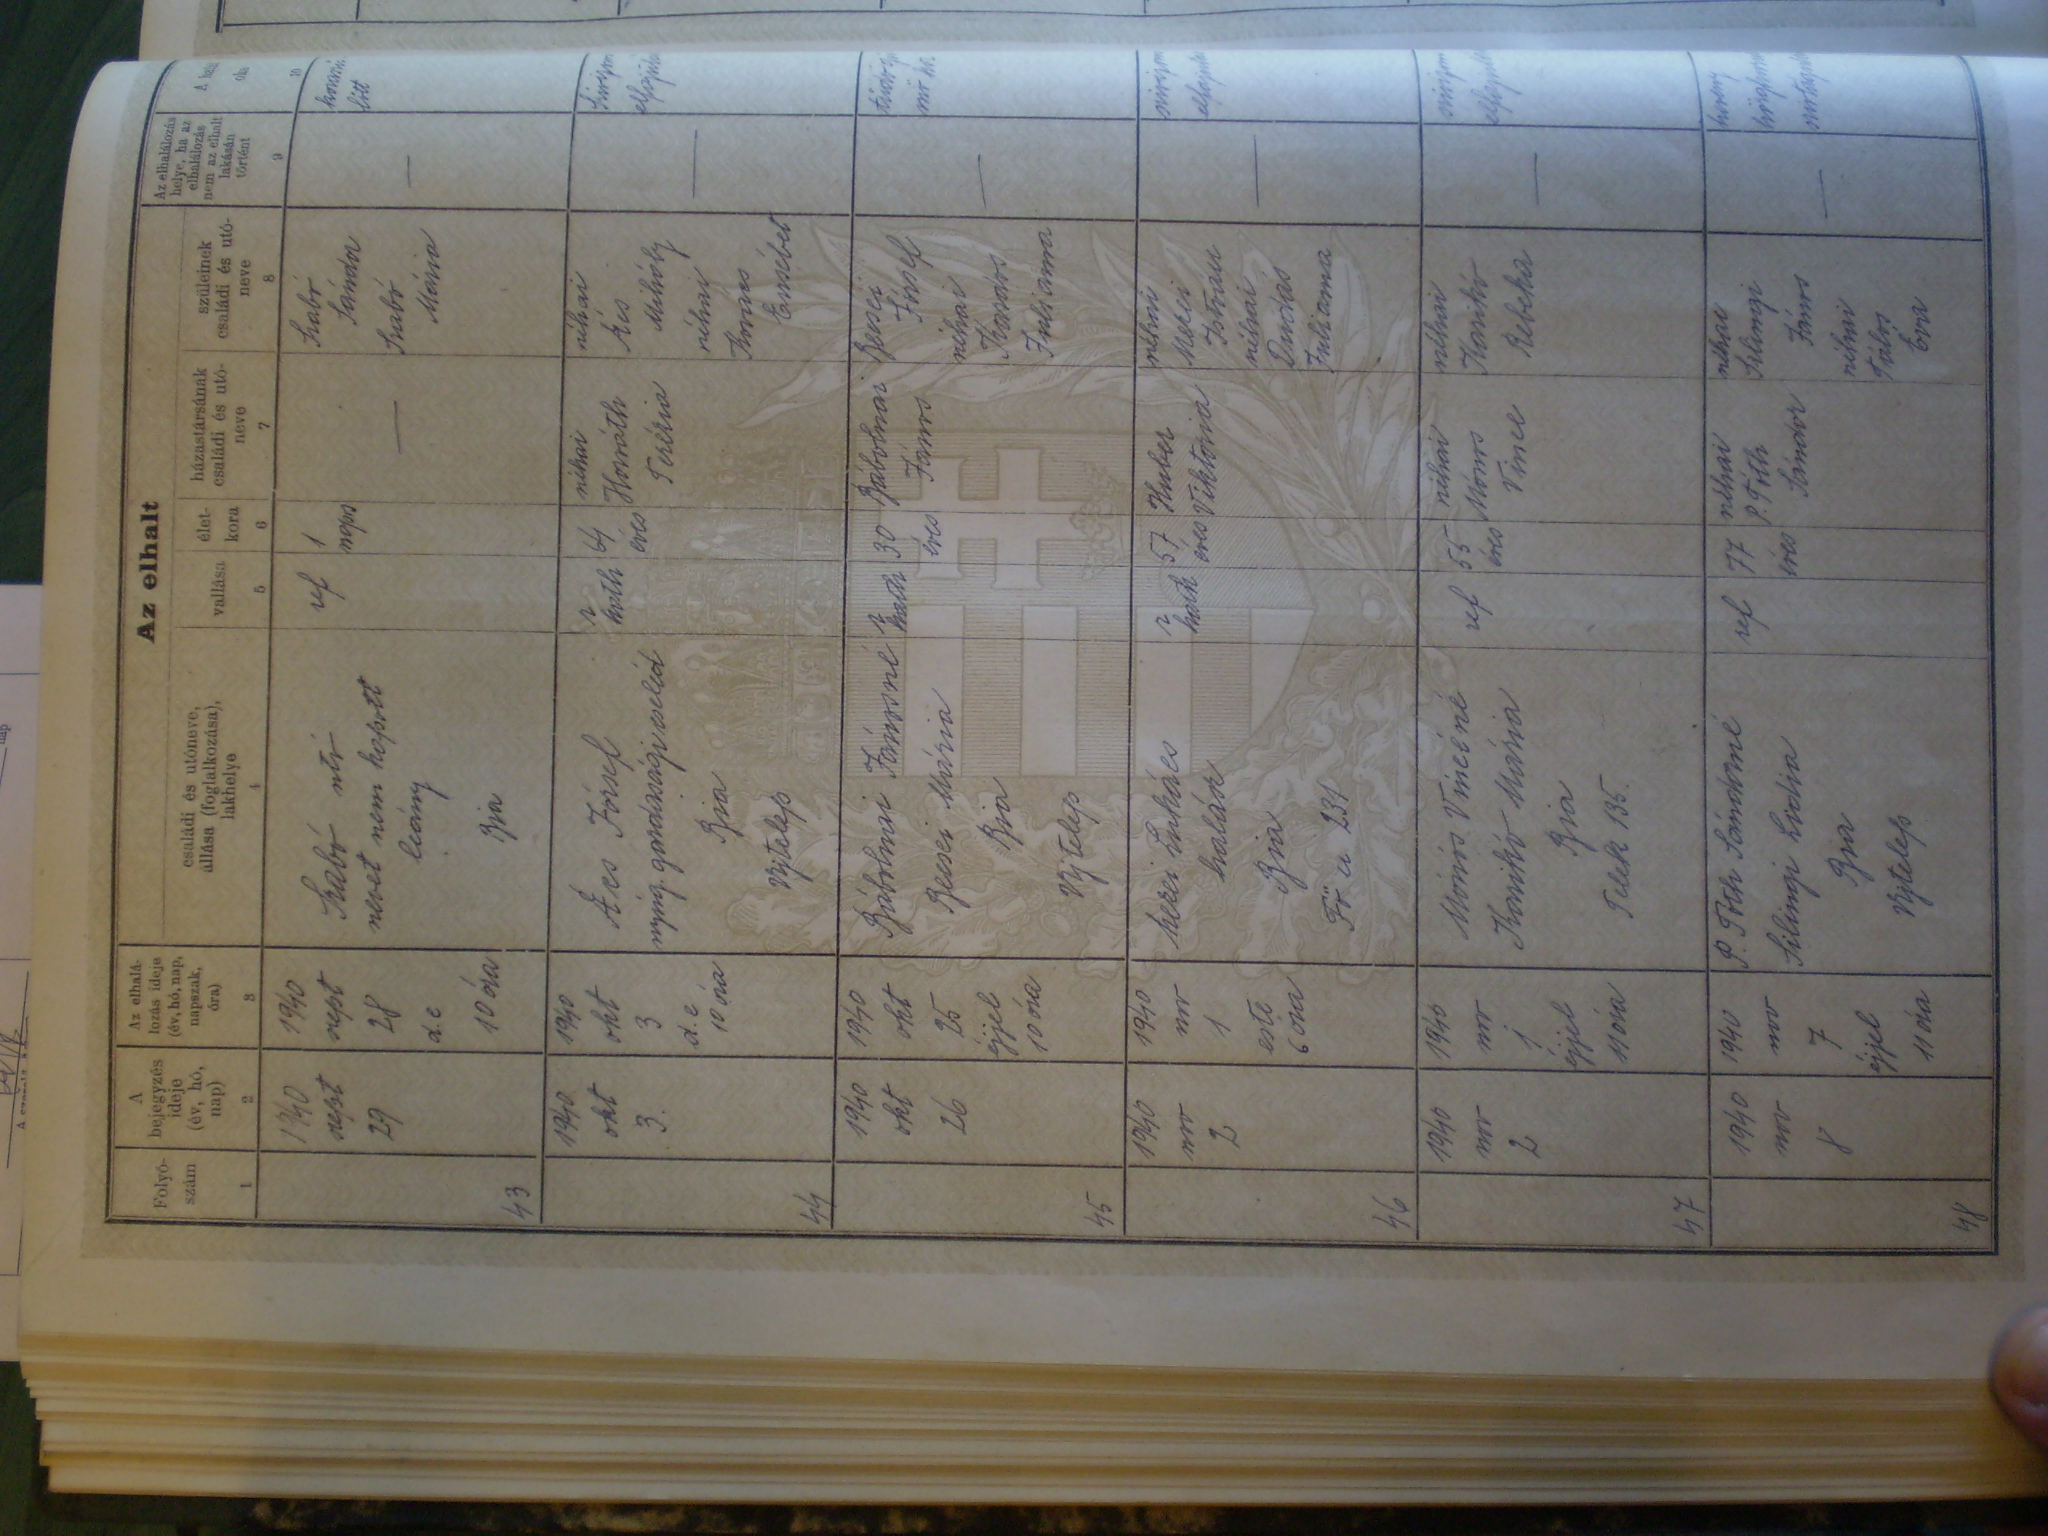 Az elhalt
Folyó-
szám
A
bejegyzés
ideje
(év, hó,
nap)
Az elhalá-
lozás ideje
(év, hó, nap,
napszak,
óra)
családi és utóneve,
állása (foglalkozása),
lakhelye
vallása
élet-
kora
házastársának
családi és utó-
neve
szüleinek
családi és utó-
neve
Az elhalálozás
helye, ha az
elhalálozás
nem az elhalt
lakásán
történt
A
oka
1
2
3
4
5
6
7
8
9
10
43
1940
sept
29
1940
sept
28
d.e
10 óra
Szabó
nevet nem kapott
leány
Bia
ref
1
napos
—
Szabó
Sándor
Szabó
Mária
—
44
1940
okt
3.
1940
okt
3
d.e
10 óra
Ács József
nyug. gazdasági cseléd
Bia
Ujtelep
r
kath
64
éves
néhai
Horváth
Terézia
néhai
Ács
Mihály
néhai
Kovács
Erzsébet
—
45
1940
okt
26
1940
okt
25
éjjel
10 óra
Bábolnai Jánosné
Becsei Mária
Bia
Ujtelep
r
kath
30
éves
Bábolnai
János
Becsei
József
néhai
Kovács
Julianna
—
46
1940
nov
2
1940
nov
1
este
6 óra
Mezei Lukács
halász
Bia
Fő u 231
r
kath
57
éves
Huber
Viktória
néhai
Mezei
István
néhai
Dudás
Julianna
—
47
1940
nov
2
1940
nov
1
éjjel
11 óra
Mónus Vincéné
Kanikó Mária
Bia
Telek 135.
ref
55
éves
néhai
Mónus
Vince
néhai
Kanikó
Rebeka
—
48
1940
nov
8
1940
nov
7
éjjel
11 óra
P. Tóth Sándorné
Silingi Lidia
Bia
Ujtelep
ref
77
éves
néhai
P. Tóth
Sándor
néhai
Silingi
János
néhai
Tálos
Éva
—